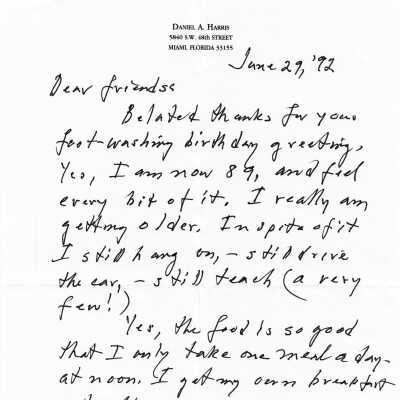 DANIEL A. HARRIS
5840 S.W. 68th STREET
MIAMI, FLORIDA 33155
June 29, '92
Dear friends:
Belated thanks for your
foot-washing birthday greeting.
Yes, I am now 89, and feel
every bit of it. I really am
getting older. In spite of it
I still hang on, – still drive
the car, – still teach (a very
few!)
Yes, the food is so good
that I only take one meal a day-
at noon. I get my own breakfast